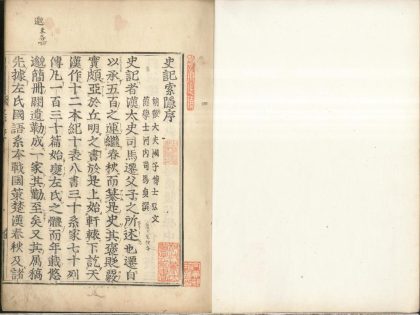 史記索隱序
朝散大夫國子博士弘文
館學士河內司馬貞撰
史記者漢太史司馬遷父子之所述也遷自
以承五百之運繼春秋而纂是史其褒貶覈
實頗亞於丘明之書於是上始軒轅下訖天
漢作十二本紀十表八書三十系家七十列
傳凡一百三十篇始變左氏之體而年載悠
邈簡冊闕遺勒成一家其勤至矣又其屬稿
先據左氏國語系本戰國策楚漢春秋及諸
邈